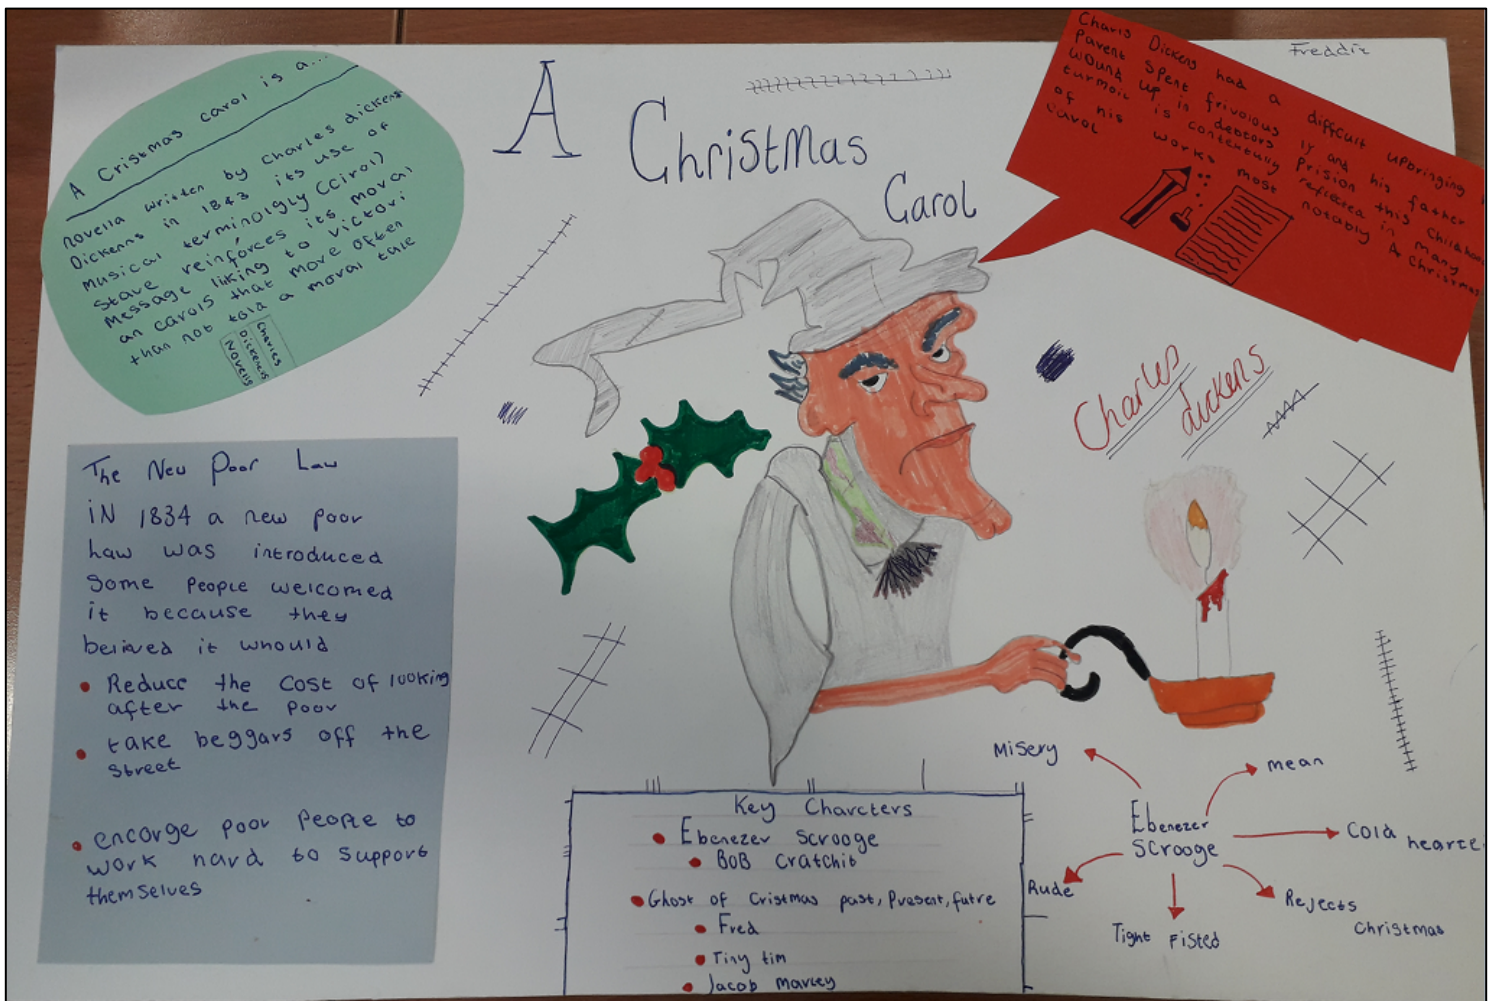 Freddie
A
Christmas
Carol
A Cristmas carol is a...
novella written by Charles dickens
Dickenns in 1843 its use of
musical terminolgly (cirol)
stave reinforces its moral
message liking to victori
an carols that move often
than not told a moral tale
Charles
Dickens
Novella
Charls Dickens had a difficult upbringing
Parent spent frivolous ly and his father
wound up in debtors Prision this Childhoo
turmoil is contextully reflected in many
of his works most notably A christmas
carol
Charles
dickens
The New Poor Law
iN 1834 a new poor
Law was introduced
Some People welcomed
it because they
belived it whould
• Reduce the cost of looking
after the poor
• take beggars off the
street
• encorge poor People to
work hard to support
themselves
Key Charcters
• Ebenezer Scrooge
• BoB Cratchit
• Ghost of Cristmas past, Present, futre
• Fred
• Tiny tim
• Jacob marley
Misery
mean
Ebenezer
Scrooge
Cold hearte
Rude
Rejects
Christmas
Tight Fisted